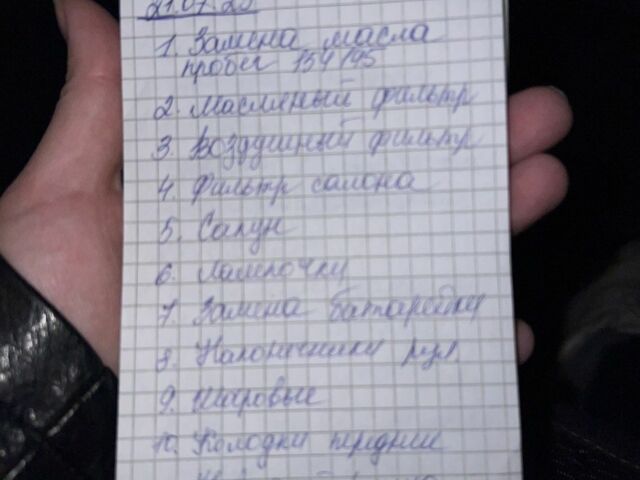 21.07.23
1. Замена масла
пробег 154795
2. Масляный фильтр
3. Воздушный фильтр
4. Фильтр салона
5. Сапун
6. Лампочки
7. Замена батарейки
8. Наконечники рул.
9. Шаровые
10. Колодки передние